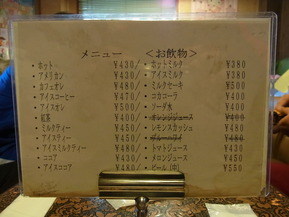 メニュー　＜お飲物＞
・ホット　¥430/
・アメリカン　¥430/
・カフェオレ　¥480/
・アイスコーヒー　¥470/
・アイスオレ　¥500/
・紅茶　¥400/
・ミルクティー　¥450/
・アイスティー　¥450/
・アイスミルクティー　¥480/
・ココア　¥430/
・アイスココア　¥480/
・ホットミルク　¥380
・アイスミルク　¥380
・ミルクセーキ　¥500
・コカコーラ　¥400
・ソーダ水　¥400
・オレンジジュース　¥400
・レモンスカッシュ　¥480
¥480
・トマトジュース　¥430
・メロンジュース　¥450
・ビール（中）　¥550